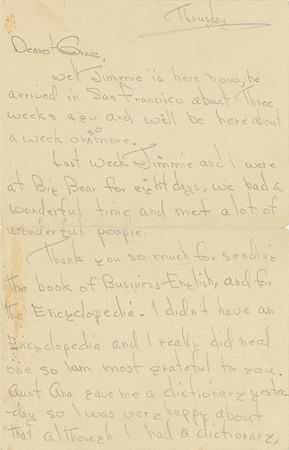 Thrusday
Dearest Grace,
Well Jimmie is here now, he
arrived in San Francisco about Three
weeks ago and will be here about
a week or so more.
Last Week Jimmie and I were
at Big Bear for eight days, we had a
wonderful time and met a lot of
wonderful people.
Thank you so much for sending
the book of Business English, and for
the Encyclopedia. I didn't have an
Encyclopedia and I really did need
one so I am most grateful to you.
Aunt Ana gave me a dictionary yester
-day so I was very happy about
that although I had a dictionary,